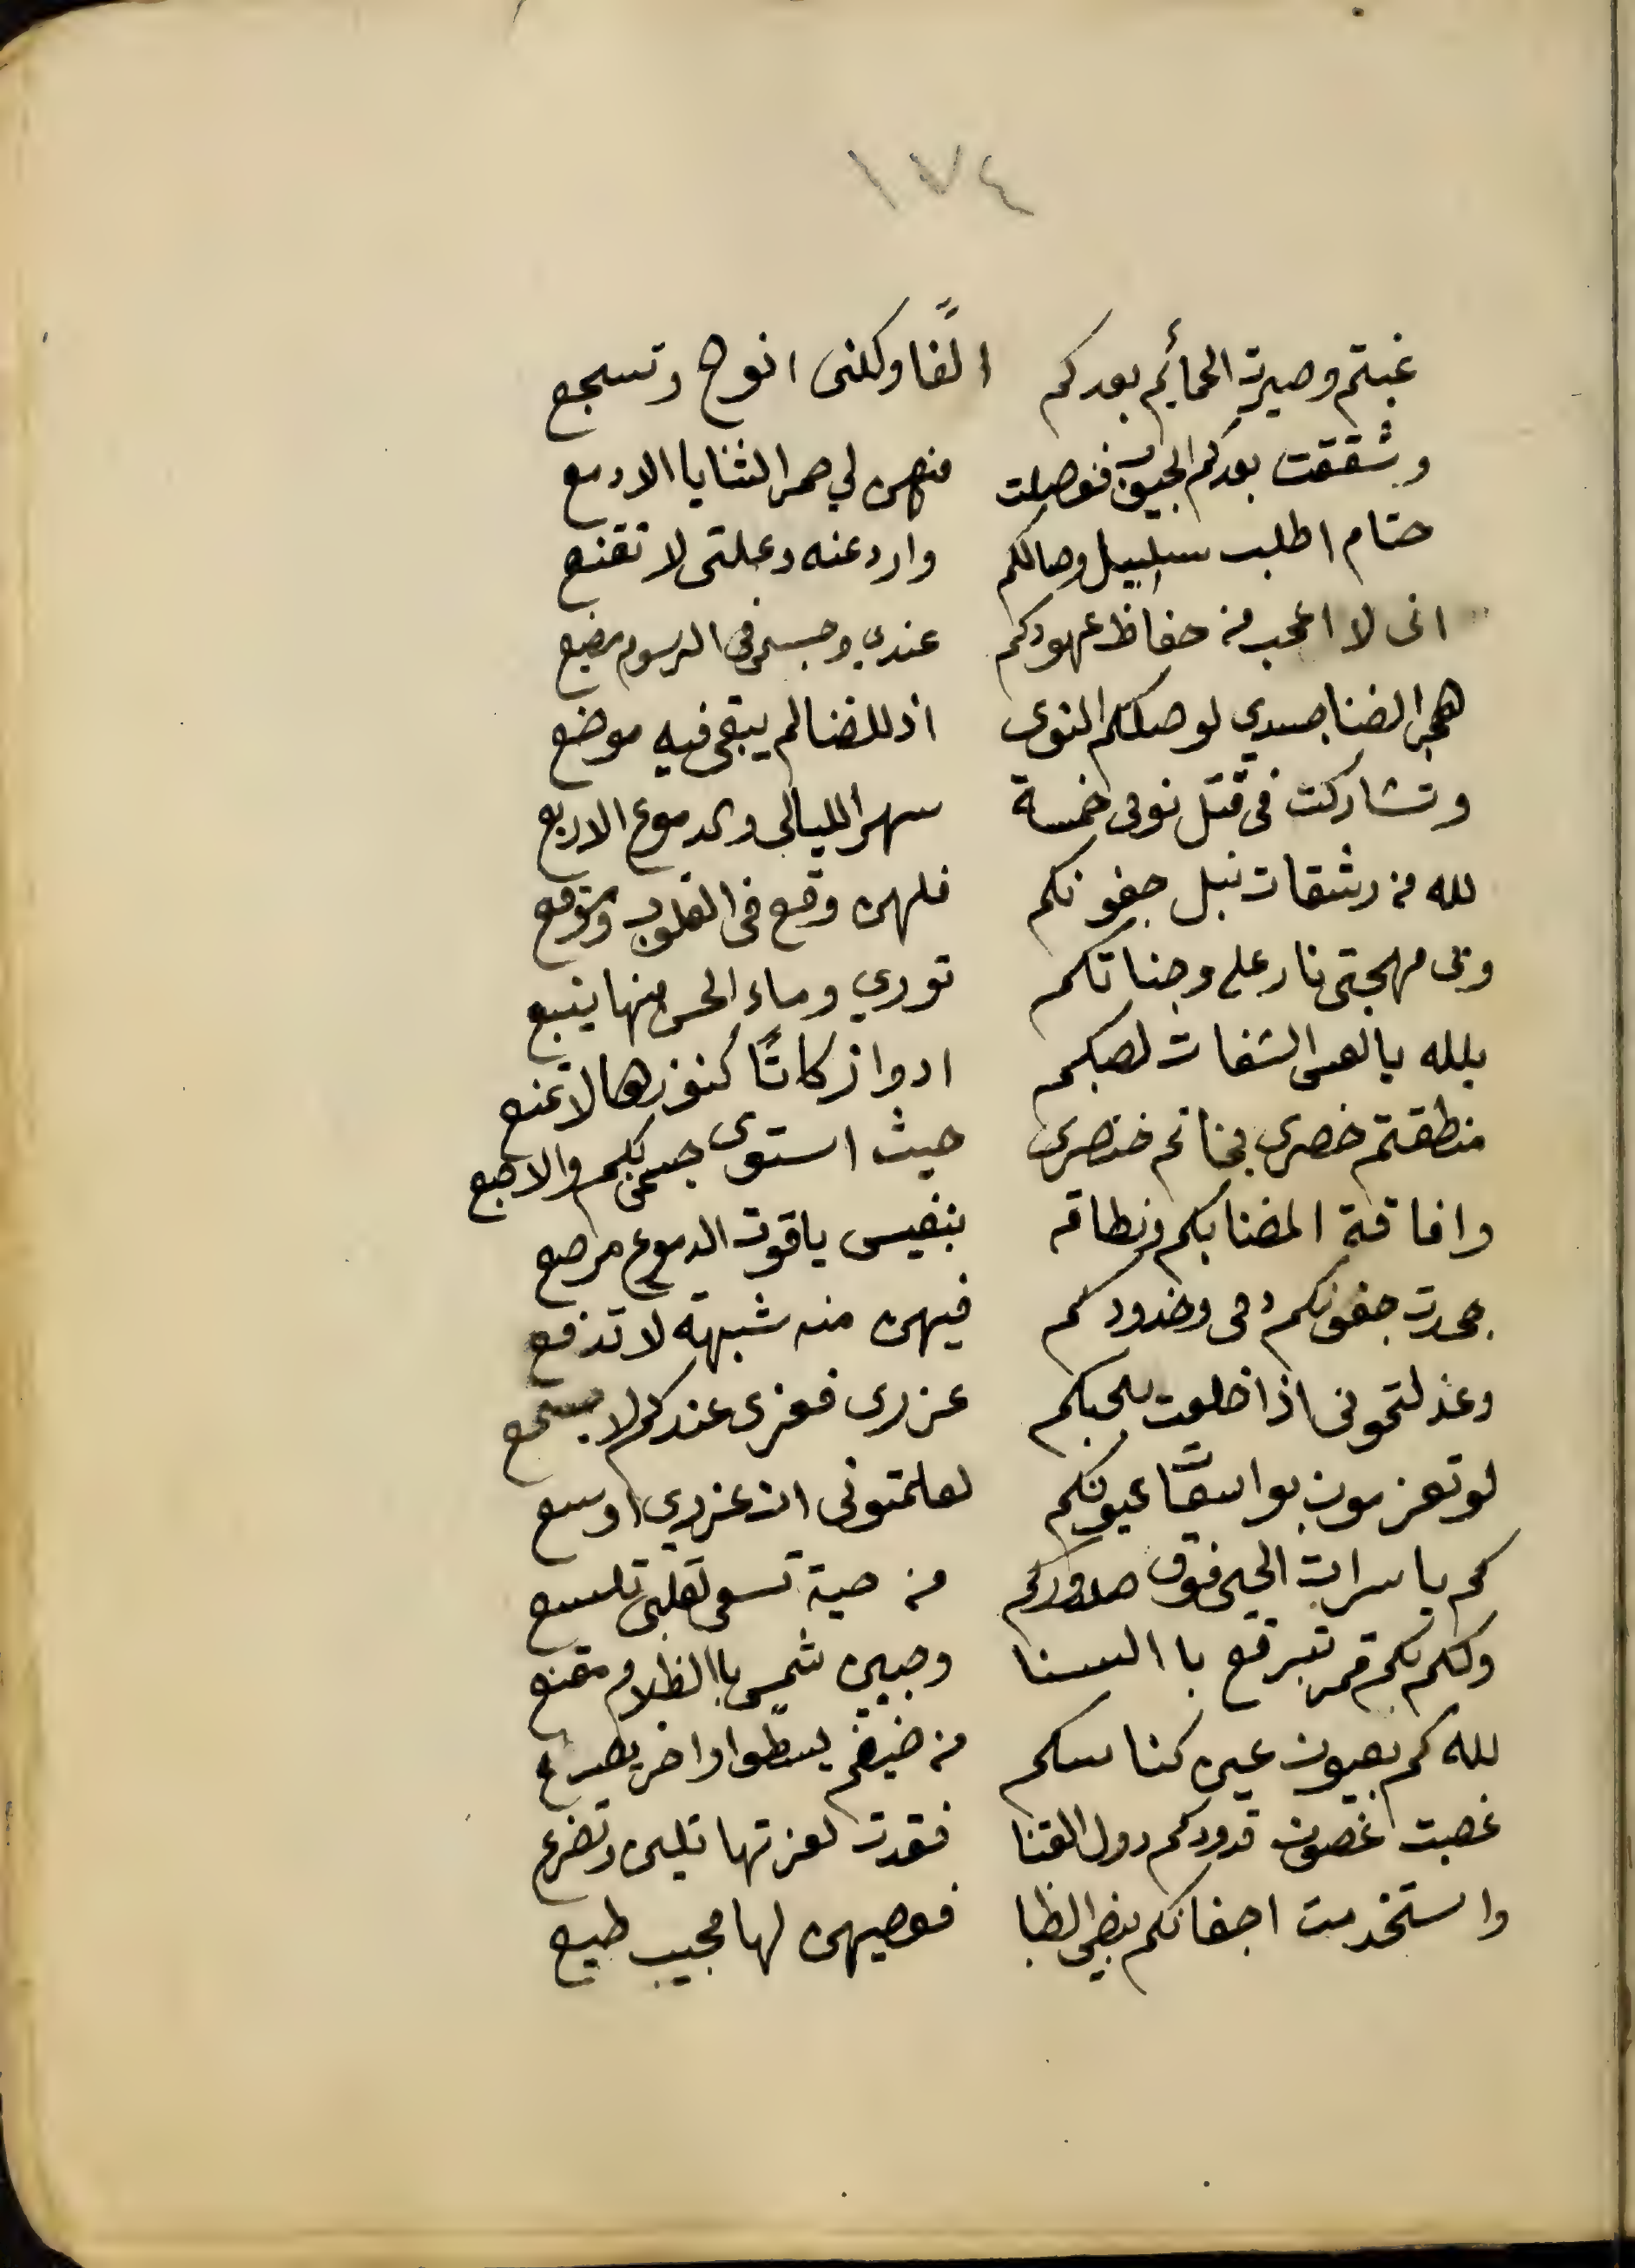 ١٧٤
غبتم وصيرت الحمائم بعدكم الفًا ولكنى انوح وتسجع
وشققت بعدكم الجيوب ففصلت منهن لي حمرا لثنايا الادمع
حتام اطلب سلسبيل وصالكم وارد عنه وعلتى لا تقنع
انى لا اعجب من حفاظ عهودكم عندي وجسمى فى الرسوم مضيع
هجر الضنا جسدي لوصلكم النوى اذ للضنا لم يبقى فيه موضع
وتشاركت فى قتل نومى خمسة سهر الليالى والدموع الاربع
لله من رشقات نبل جفونكم فلهن وقع فى القلوب وموقع
وبى مهجتى نار على وجناتكم توري وماء الحسن منها ينبع
بلله يا لعس الشفات لصبكم ادوا زكاتًا كنوزها لا تمنع
منطقتم خصرى بخاتم خنصرى حيث استوى جسمى بكم والاصبع
وافاقة المضنا بكم ونطاقه بنفيس ياقوت الدموع مرصع
جحدت جفونكم دمى وخدودكم فيهن منه شبهته لا تدفع
وعذلتمونى اذا خلعت بحبكم عزرى فعزرى عندكم لا يسمع
لو تعزمون بواسقًا عيونكم لعلمتونى ان عزري اوسع
كم يا سرات الحى فوق صدوركم من حية تسعى لقلبى تلسع
ولكم بكم قمر تبرقع با السنا وجبين شمس باالظلام مقنع
لله كم بعيون عين كناسكم من ضيغم يسطوا واخر يصرع
غصبت غصون قدودكم دول القنا فغدت لعزتها تلين وتضرع
واستخدمت اجفانكم بيض الظبا فعصيهن لها مجيب طيع